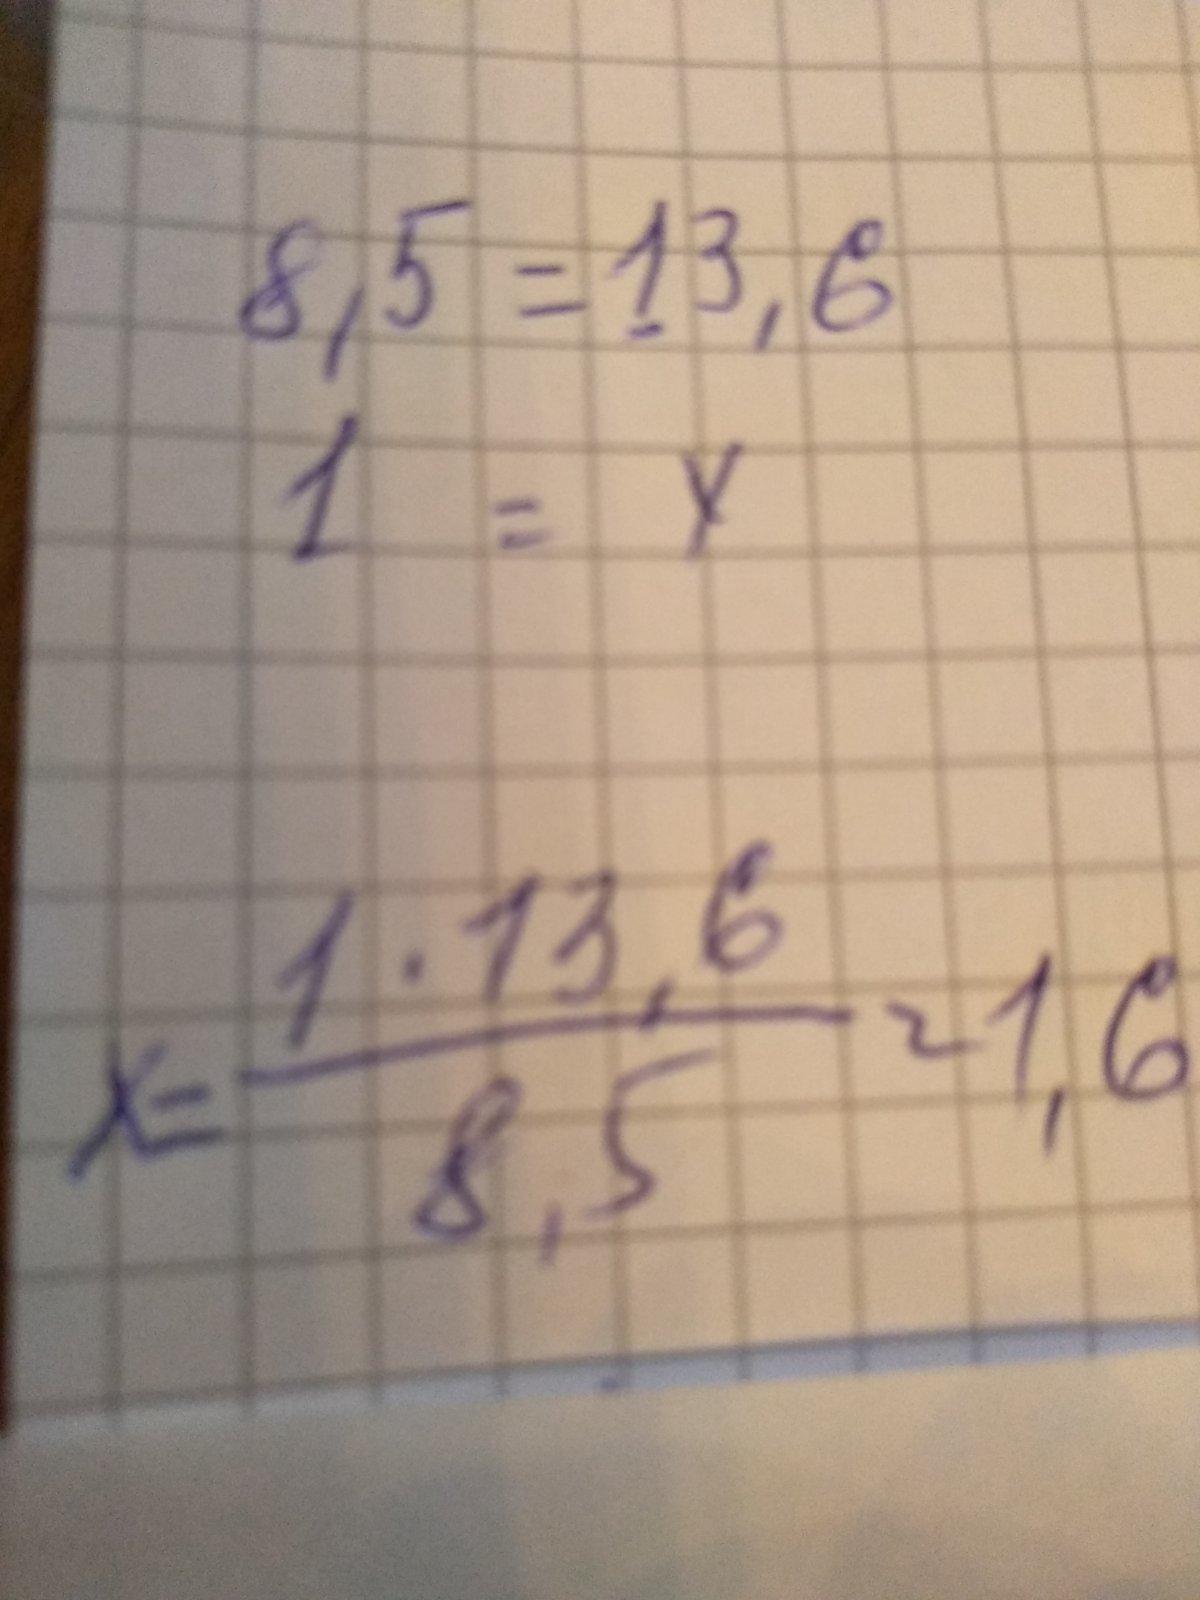 8,5 = 13,6
1 = x
x = (1 · 13,6) / 8,5 ≈ 1,6